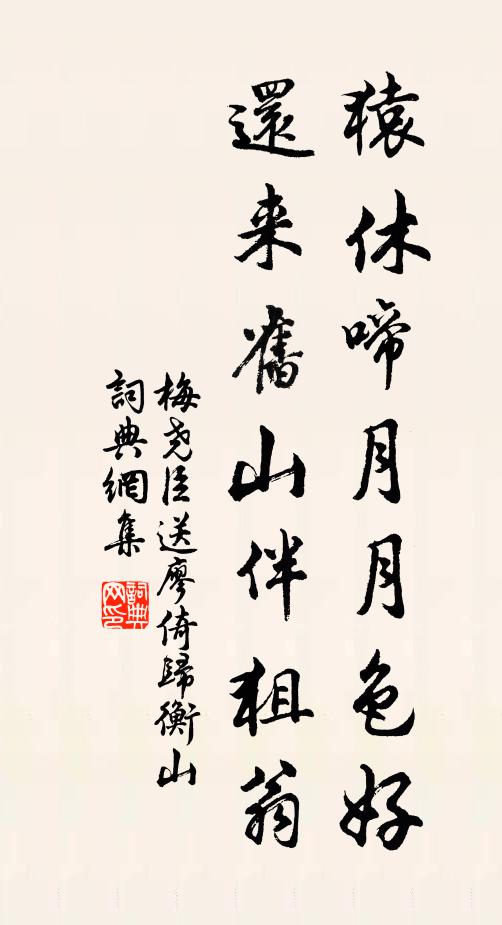 猿休啼月月色好
還来舊山伴狙翁
梅堯臣送廖倚歸衡山
詞典網集
詞典
网印